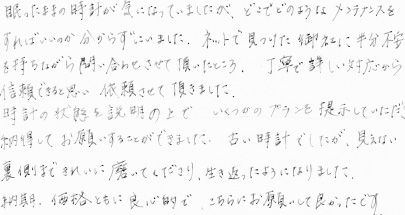 眠ったままの時計が気になっていましたが、どこでどのようなメンテナンスを
すればいいのか分からずにいました。ネットで見つけた御社に半分不安
を持ちながら問い合わせさせて頂いたところ、丁寧で詳しい対応から
信頼できると思い依頼させて頂きました。
時計の状態を説明の上で いくつかのプランを提示していただき
納得してお願いすることができました。古い時計でしたが、見えない
裏側まできれいに磨いてくださり、生き返ったようになりました。
納期、価格ともに良心的で、こちらにお願いして良かったです